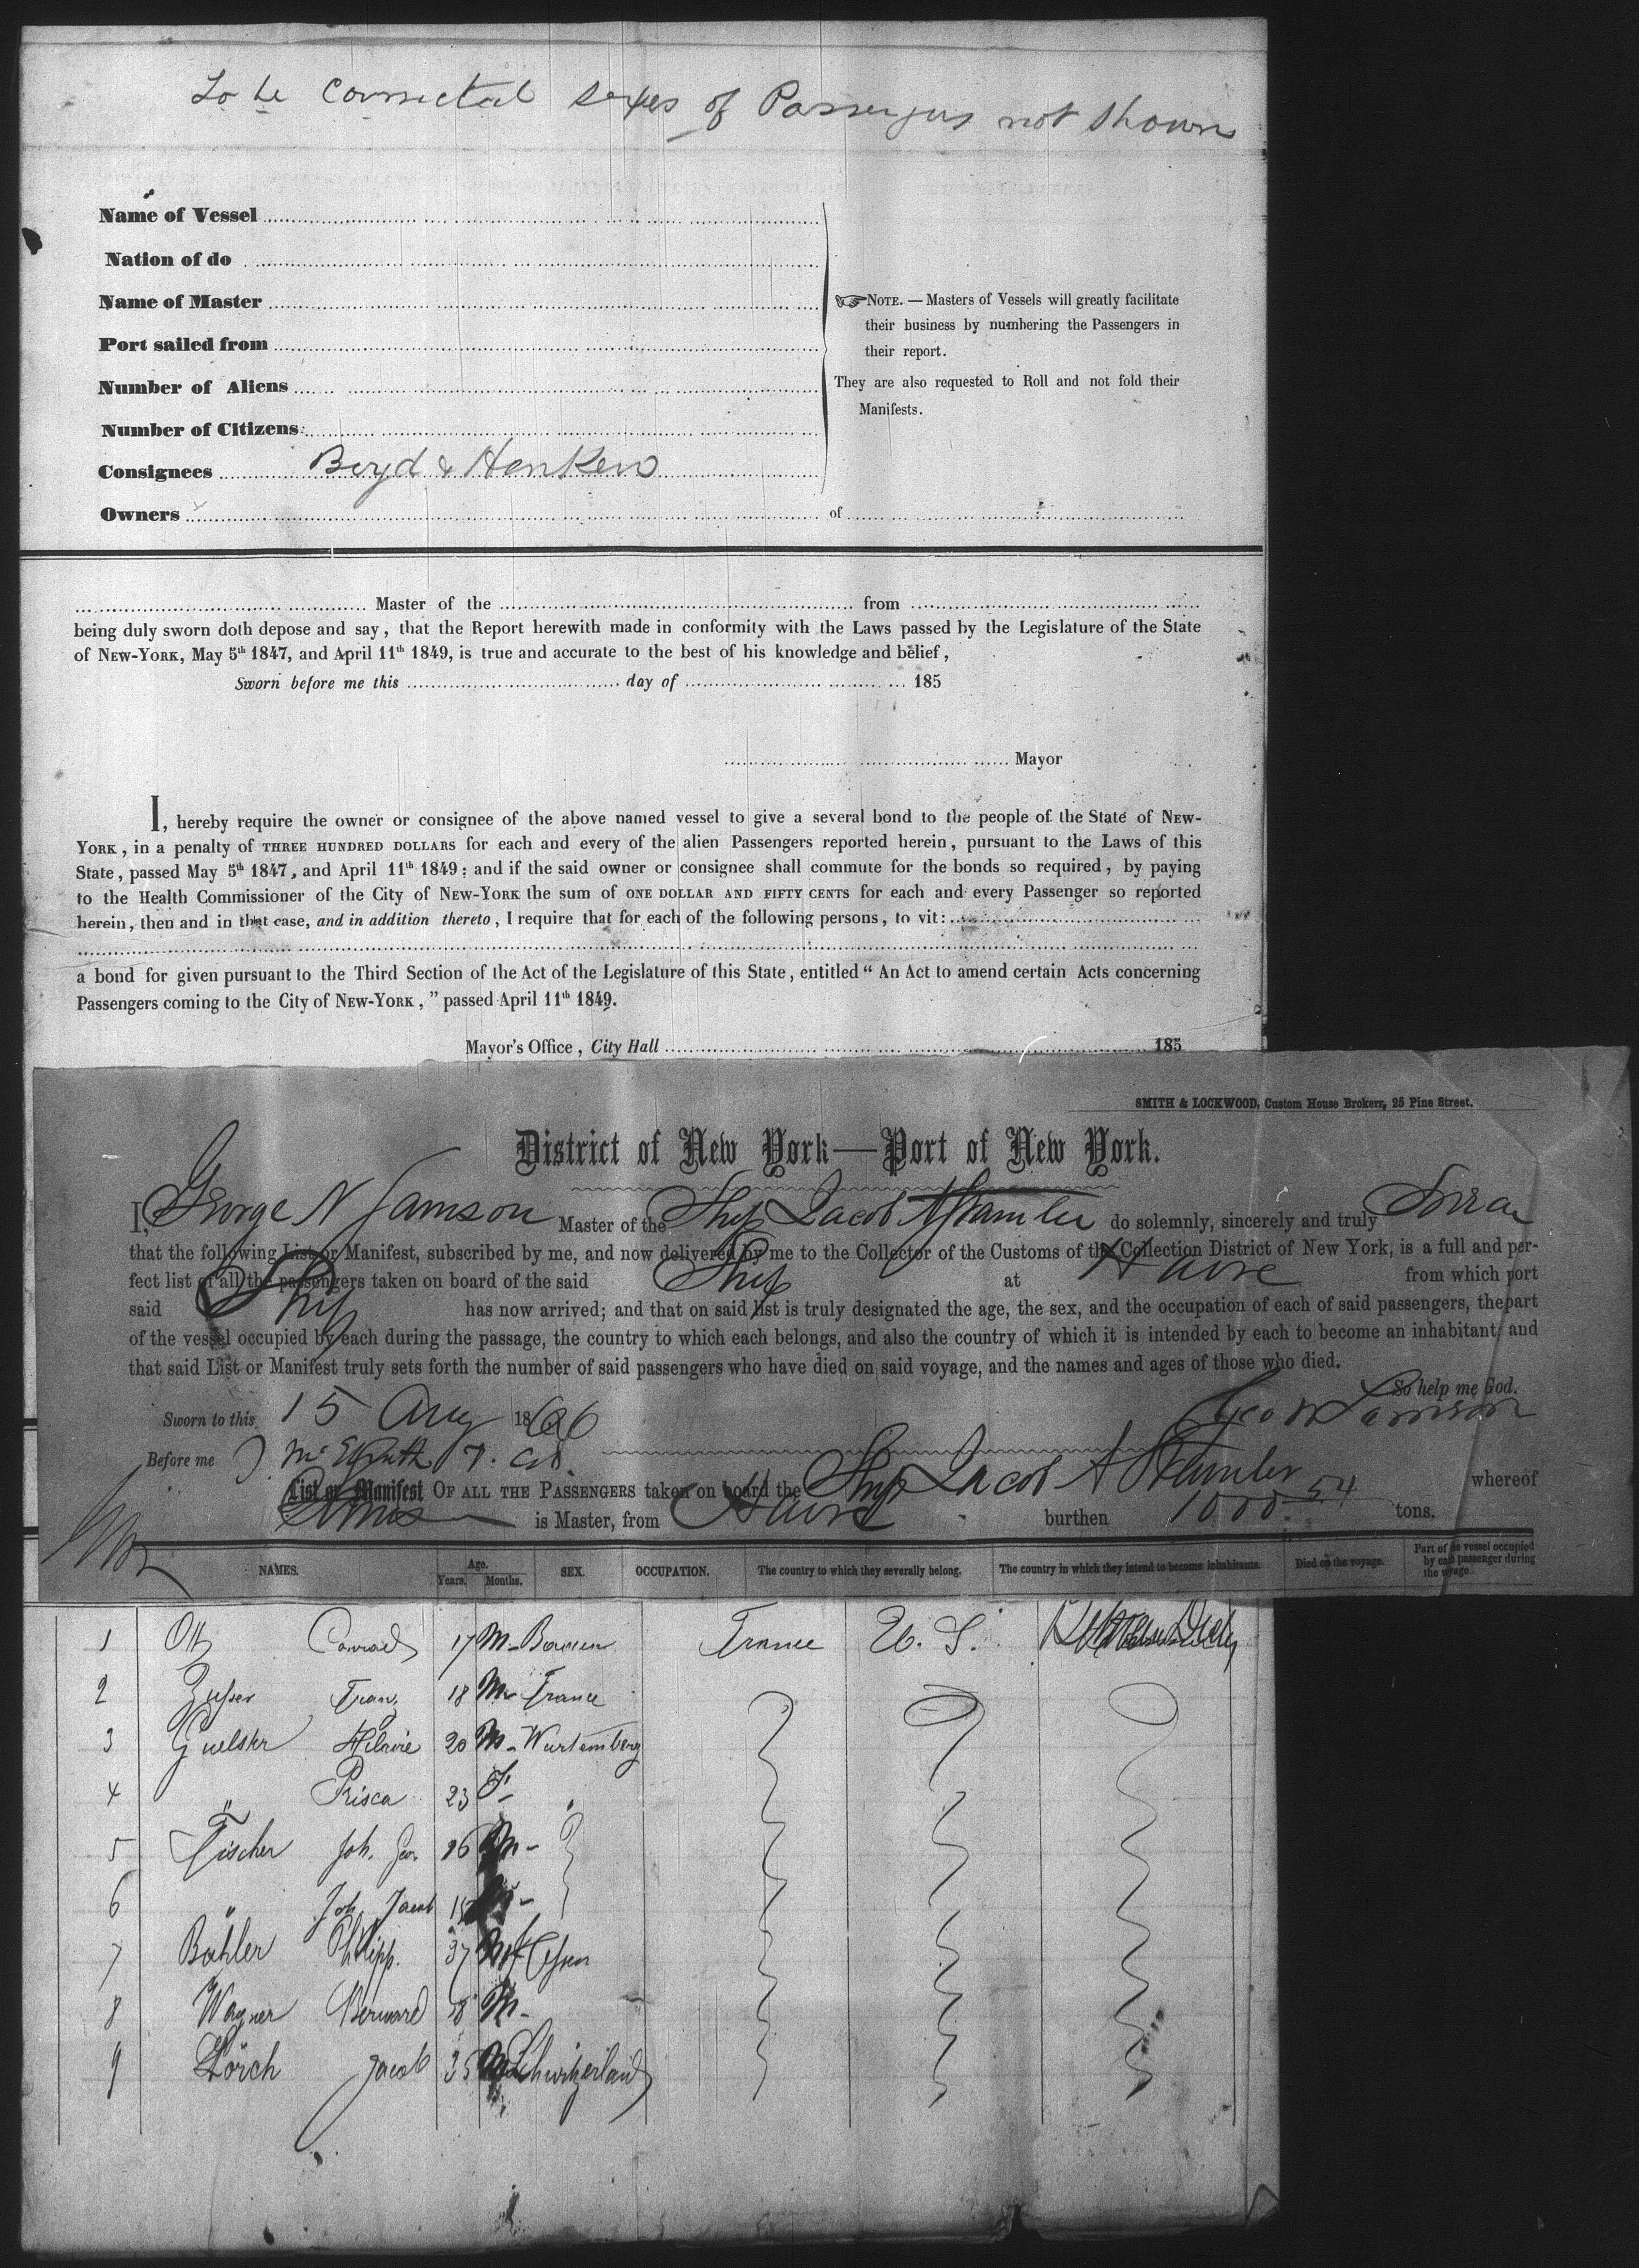 To be Corrected sexes of Passengers not shown
Name of Vessel
Nation of do
Name of Master
Port sailed from
Number of Aliens
Number of Citizens
Consignees Boyd & Henken
Owners of
NOTE. — Masters of Vessels will greatly facilitate
their business by numbering the Passengers in
their report.
They are also requested to Roll and not fold their
Manifests.
Master of the from
being duly sworn doth depose and say, that the Report herewith made in conformity with the Laws passed by the Legislature of the State
of NEW-YORK, May 5th 1847, and April 11th 1849, is true and accurate to the best of his knowledge and belief,
Sworn before me this day of 185
Mayor
I, hereby require the owner or consignee of the above named vessel to give a several bond to the people of the State of NEW-
YORK, in a penalty of THREE HUNDRED DOLLARS for each and every of the alien Passengers reported herein, pursuant to the Laws of this
State, passed May 5th 1847, and April 11th 1849: and if the said owner or consignee shall commute for the bonds so required, by paying
to the Health Commissioner of the City of NEW-YORK the sum of ONE DOLLAR AND FIFTY CENTS for each and every Passenger so reported
herein, then and in that case, and in addition thereto, I require that for each of the following persons, to vit:
a bond for given pursuant to the Third Section of the Act of the Legislature of this State, entitled “ An Act to amend certain Acts concerning
Passengers coming to the City of NEW-YORK, ” passed April 11th 1849.
Mayor's Office, City Hall 185
SMITH & LOCKWOOD, Custom House Brokers, 25 Pine Street.
District of New York—Port of New York.
I, George N Samson Master of the Ship Jacob A Stamler do solemnly, sincerely and truly Swear
that the following List or Manifest, subscribed by me, and now delivered by me to the Collector of the Customs of the Collection District of New York, is a full and per-
fect list of all the passengers taken on board of the said Ship at Havre from which port
said Ship has now arrived; and that on said list is truly designated the age, the sex, and the occupation of each of said passengers, the part
of the vessel occupied by each during the passage, the country to which each belongs, and also the country of which it is intended by each to become an inhabitant; and
that said List or Manifest truly sets forth the number of said passengers who have died on said voyage, and the names and ages of those who died.
So help me God.
Sworn to this 15 Aug 1866 Geo N Samson
Before me
List or Manifest OF ALL THE PASSENGERS taken on board the Ship Jacob A Stamler whereof
is Master, from Havre burthen 1000 54 tons.
NAMES. Age. Years. Months. SEX. OCCUPATION. The country to which they severally belong. The country in which they intend to become inhabitants. Died on the voyage. Part of the vessel occupied by each passenger during the voyage.
1 Ott Conrad 17 M France U. S.
2 Franz 18 M France
3 Hilaire 20 M Wurtemberg
4 " Prisca 23 F "
5 Fischer Joh. Geo. 16 M
6 " Joh. Jacob 15 M
7 Bähler Philipp. 37 M Hessen
8 Wagner Bernard 18 M
9 Lörch Jacob 35 M Schwitzerland